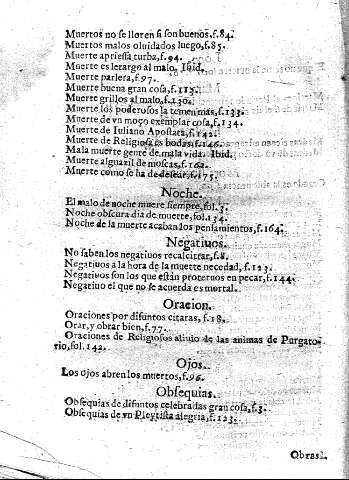 Muertos no se lloren si son buenos, f.84.
Muertos malos oluidados luego, f.85.
Muerte apriessa turba, f.94.
Muerte es letargo al malo. Ibid.
Muerte parlera, f.97.
Muerte buena gran cosa, f.113.
Muerte grillos al malo, f.130.
Muerte los poderosos la temen mas, f.133.
Muerte de vn moço exemplar cosa, f.134.
Muerte de Iuliano Apostata, f.142.
Muerte de Religiosa es bodas, f.146.
Mala muerte gente de mala vida. Ibid.
Muerte alguazil de moscas, f.162.
Muerte como se ha de desear, f.175.
Noche.
El malo de noche muere siempre, fol.3.
Noche obscura dia de muerte, fol.134.
Noche de la muerte acaban los pensamientos, f.164.
Negatiuos.
No saben los negatiuos recalcitrar, f.8.
Negatiuos a la hora de la muerte necedad, f.123.
Negatiuos son los que están proteruos en pecar, f.144.
Negatiuo el que no se acuerda es mortal.
Oracion.
Oraciones por difuntos citaras, f.18.
Orar, y obrar bien, f.77.
Oraciones de Religiosos aliuio de las animas de Purgato-
rio, fol.142.
Ojos.
Los ojos abren los muertos, f.96.
Obsequias.
Obsequias de difuntos celebrallas gran cosa, f.3.
Obsequias de vn Pleytista alegria, f.123.